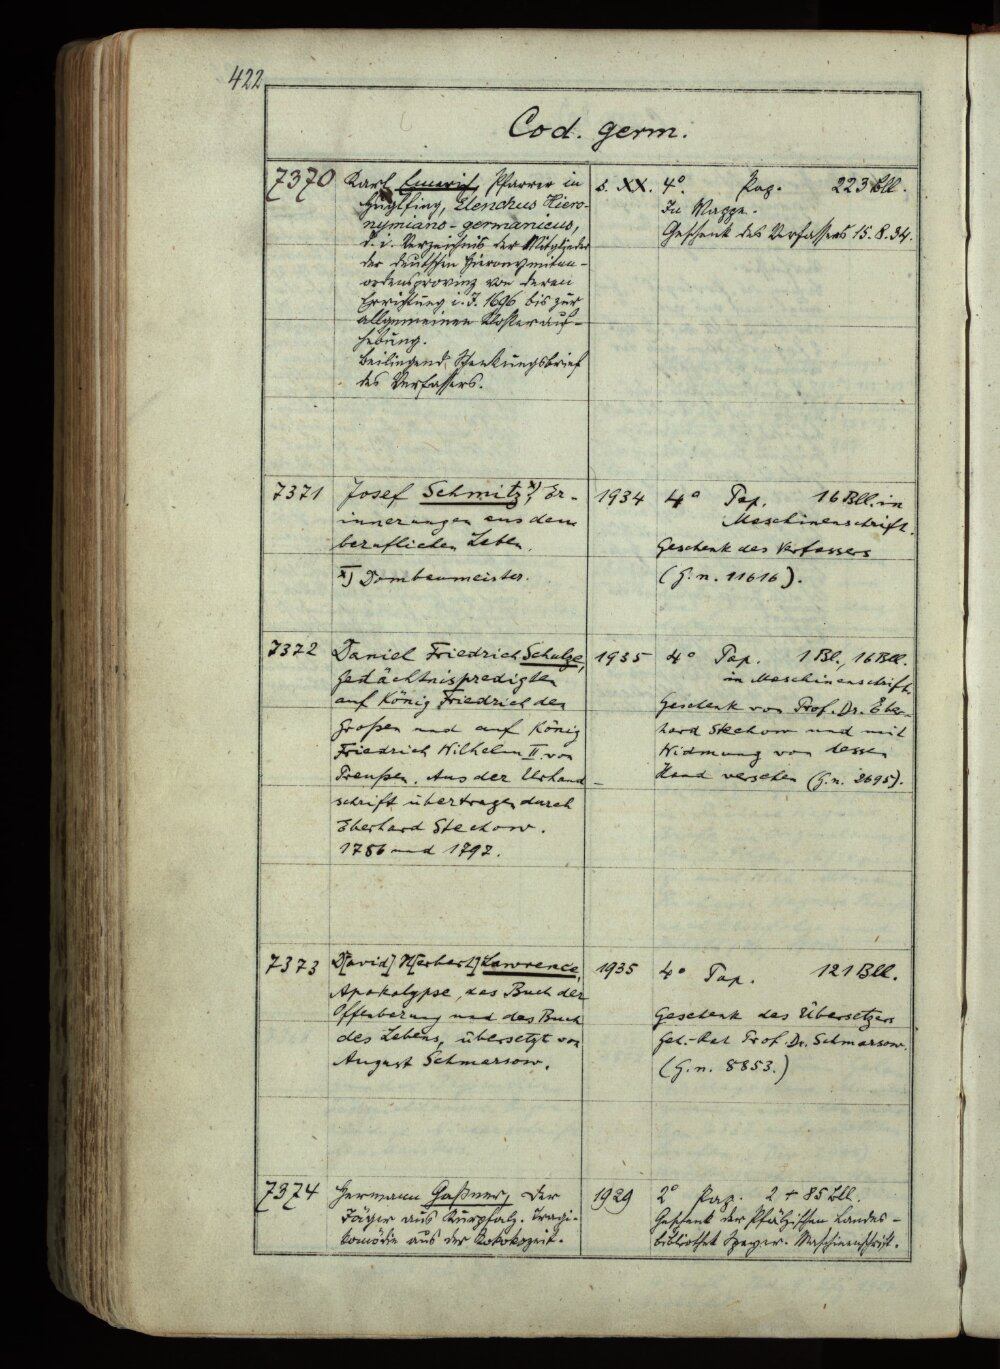 422
Cod. germ.
7370 Karl Emerich, Pfarrer in s. XX. 4°. Pap. 223 Bll.
Huglfing, Elenchus Hiero- In Mappe.
nymiano-germanicus, Geschenk des Verfassers 15.8.34.
d. i. Verzeichnis der Mitglieder
der deutschen Hieronymitan-
ordensprovinz von deren
Errichtung i. J. 1696 bis zur
allgemeinen Klosterauf-
hebung.
Beiliegend: Schenkungsbrief
des Verfassers.
7371 Josef Schmitz x), Er- 1934 4° Pap. 16 Bll. in
innerungen aus dem Maschinenschrift.
beruflichen Leben. Geschenk des Verfassers
x) Dombaumeister. (G. n. 11616).
7372 Daniel Friedrich Schulze, 1935 4° Pap. 1 Bl., 16 Bll.
Gedächtnispredigten in Maschinenschrift.
auf König Friedrich den Geschenk von Prof. Dr. Eber-
Großen und auf König hard Stechow und mit
Friedrich Wilhelm II. von Widmung von dessen
Preußen. Aus der Urhand- Hand versehen (G. n. 2695).
schrift übertragen durch
Eberhard Stechow.
1786 und 1797.
7373 D[avid] H[erbert] Lawrence, 1935 4° Pap. 121 Bll.
Apokalypse, das Buch der
Offenbarung und das Buch Geschenk des Übersetzers
des Lebens, übersetzt von Geh.-Rat Prof. Dr. Schmarsow.
August Schmarsow. (G. n. 8853.)
7374 Hermann Gaßner, Der 1929 2° Pap. 2 + 85 Bll.
Jäger aus Kurpfalz. Tragi- Geschenk der Pfälzischen Landes-
komödie aus der Rokokozeit. bibliothek Speyer. Maschinenschrift.